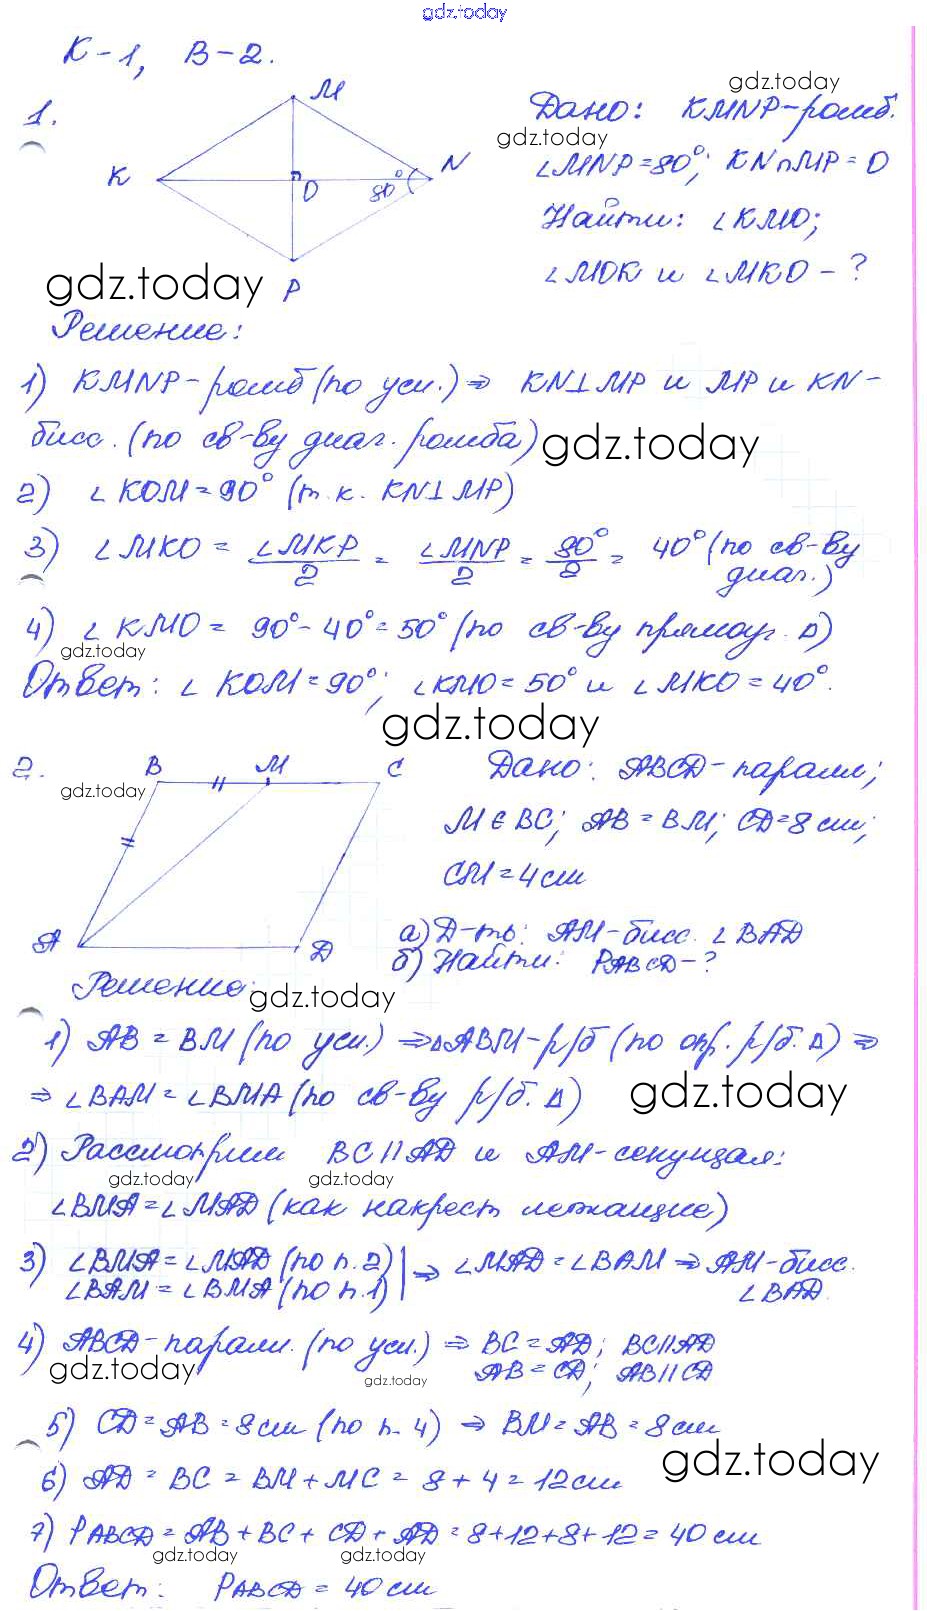 gdz.today
К-1, В-2.
gdz.today
1.
M
K
N
O
80°
P
Дано: KMNP-ромб.
gdz.today
∠MNP=80°; KN∩MP=O
Найти: ∠KMO;
∠MOK и ∠MKO-?
gdz.today
Решение:
1) KMNP-ромб (по усл.) ⇒ KN⊥MP и MP и KN-
бисс. (по св-ву диаг. ромба)
gdz.today
2) ∠KOM=90° (т.к. KN⊥MP)
3) ∠MKO = ∠MKP/2 = ∠MNP/2 = 80°/2 = 40° (по св-ву
диаг.)
4) ∠KMO = 90°-40°=50° (по св-ву прямоуг. Δ)
gdz.today
Ответ: ∠KOM=90°; ∠KMO=50° и ∠MKO=40°.
gdz.today
2.
B
M
C
A
D
gdz.today
Дано: ABCD-паралл;
M∈BC; AB=BM; CD=8см;
CM=4см
а) Д-ть: AM-бисс. ∠BAD
б) Найти: PABCD-?
Решение:
gdz.today
1) AB=BM (по усл.) ⇒ΔABM-р/б (по опр. р/б. Δ) ⇒
⇒ ∠BAM=∠BMA (по св-ву р/б. Δ)
gdz.today
2) Рассмотрим BC||AD и AM-секущая:
gdz.today gdz.today
∠BMA=∠MAD (как накрест лежащие)
3) ∠BMA=∠MAD (по п.2) | ⇒ ∠MAD=∠BAM ⇒ AM-бисс.
∠BAM=∠BMA (по п.1) ∠BAD.
4) ABCD-паралл. (по усл.) ⇒ BC=AD; BC||AD
AB=CD; AB||CD
gdz.today gdz.today
5) CD=AB=8см (по п. 4) ⇒ BM=AB=8см
gdz.today
6) AD=BC=BM+MC=8+4=12см
7) PABCD=AB+BC+CD+AD=8+12+8+12=40см
gdz.today gdz.today
Ответ: PABCD=40см